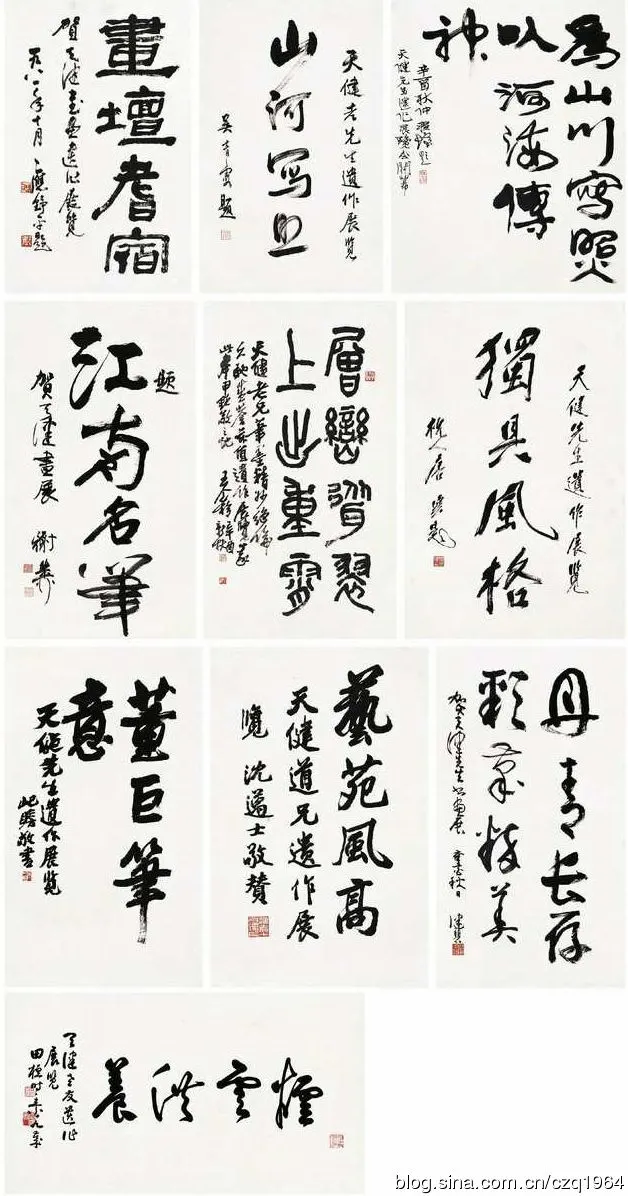 畫壇耆宿
賀天健書畫遺作展覽
一九八一年十月 野平題
天健老先生遺作展览
山河寫照
吴青霞題
為山川寫照
以河海傳
神
辛酉秋仲 題
天健先生遺作展覽会開幕
題
江南名筆
賀天健畫展
層巒聳翠
上出重霄
天健老兄
獨具風格
天健先生遺作展览
唐雲題
董巨筆
意
天健先生遺作展览
敬書
藝苑風高
天健道兄遺作展
覽 沈邁士敬贊
丹青長存
彩筆精美
賀天健先生书畫展 辛酉秋日
煙雲供養
天健老友遺作
展覽
田桓时年八九
blog.sina.com.cn/czq1964